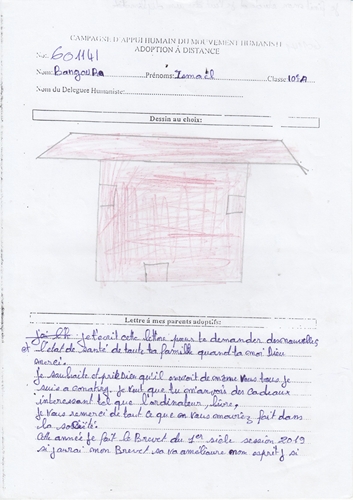 CAMPAGNE D'APPUI HUMAIN DU MOUVEMENT HUMANISTE
ADOPTION À DISTANCE
No: 601141
Nom: Bangoura Prénoms: Ismaël Classe 10è A
Nom du Délégué Humaniste:
Dessin au choix:
Lettre à mes parents adoptifs:
je t'ecrit cette lettre pour te demander des nouvelles
et l'état de santé de toute ta famille quand ta moi Dieu
merci.
Je souhaite qu'il de même vous tous je
suis a conakry. Je veut que tu m'envois des cadeaux
interessant tel que l'ordinateur, livre,
Je vous remerci de tout ce que vous fait dans
la
année je fait le Brevet du 1er siècle session 2019
si j'aurai mon Brevet sa va améliore mon esprit, si